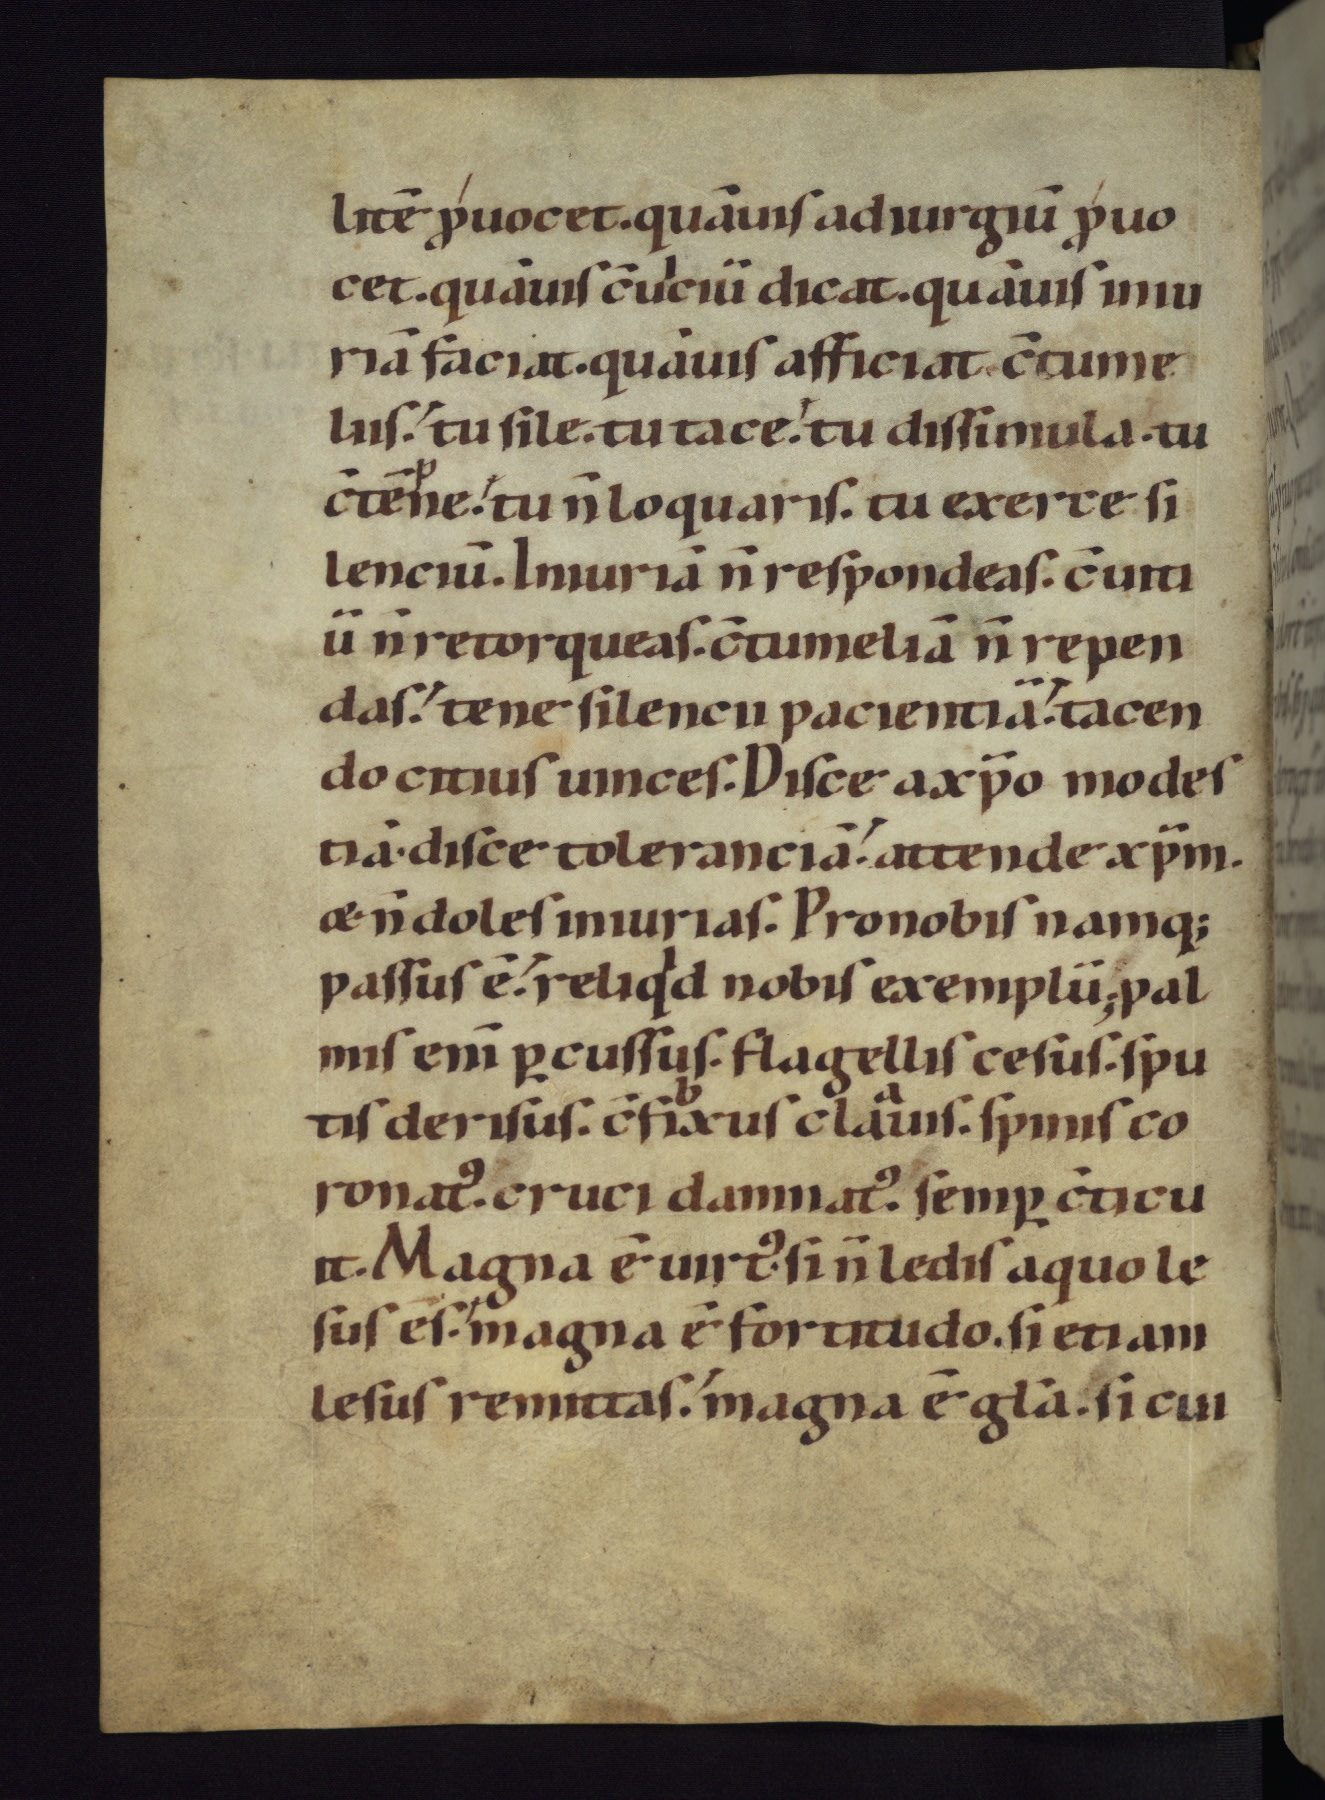 litē p̄uocet. quāuis ad iurgiū p̄uo
cet. quāuis c̄uiciū dicat. quāuis iniu
riā faciat. quāuis afficiat c̄tume
liis. tu sile. tu tace. tu dissimula. tu
c̄tēpne. tu n̄ loquaris. tu exerce si
lenciū. Iniuriā n̄ respondeas. c̄uiti
ū n̄ retorqueas. c̄tumeliā n̄ repen
das. tene silencii pacientiā. tacen
do citius uinces. Disce a xp̄o modes
tiā. disce toleranciā. attende xp̄m.
& n̄ doles iniurias. Pro nobis namq;
passus ē. reliqid nobis exemplū; pal
mis eni᷒m ꝑcussus. flagellis cesus. spu
tis derisus. c̄fixus clauis. spinis co
ronatꝰ. cruci damnatꝰ. semꝑ c̄ticu
it. Magna ē uirtꝰ. si n̄ ledis a quo le
sus es. magna ē fortitudo. si etiam
lesus remittas. magna ē gl̄a. si cui